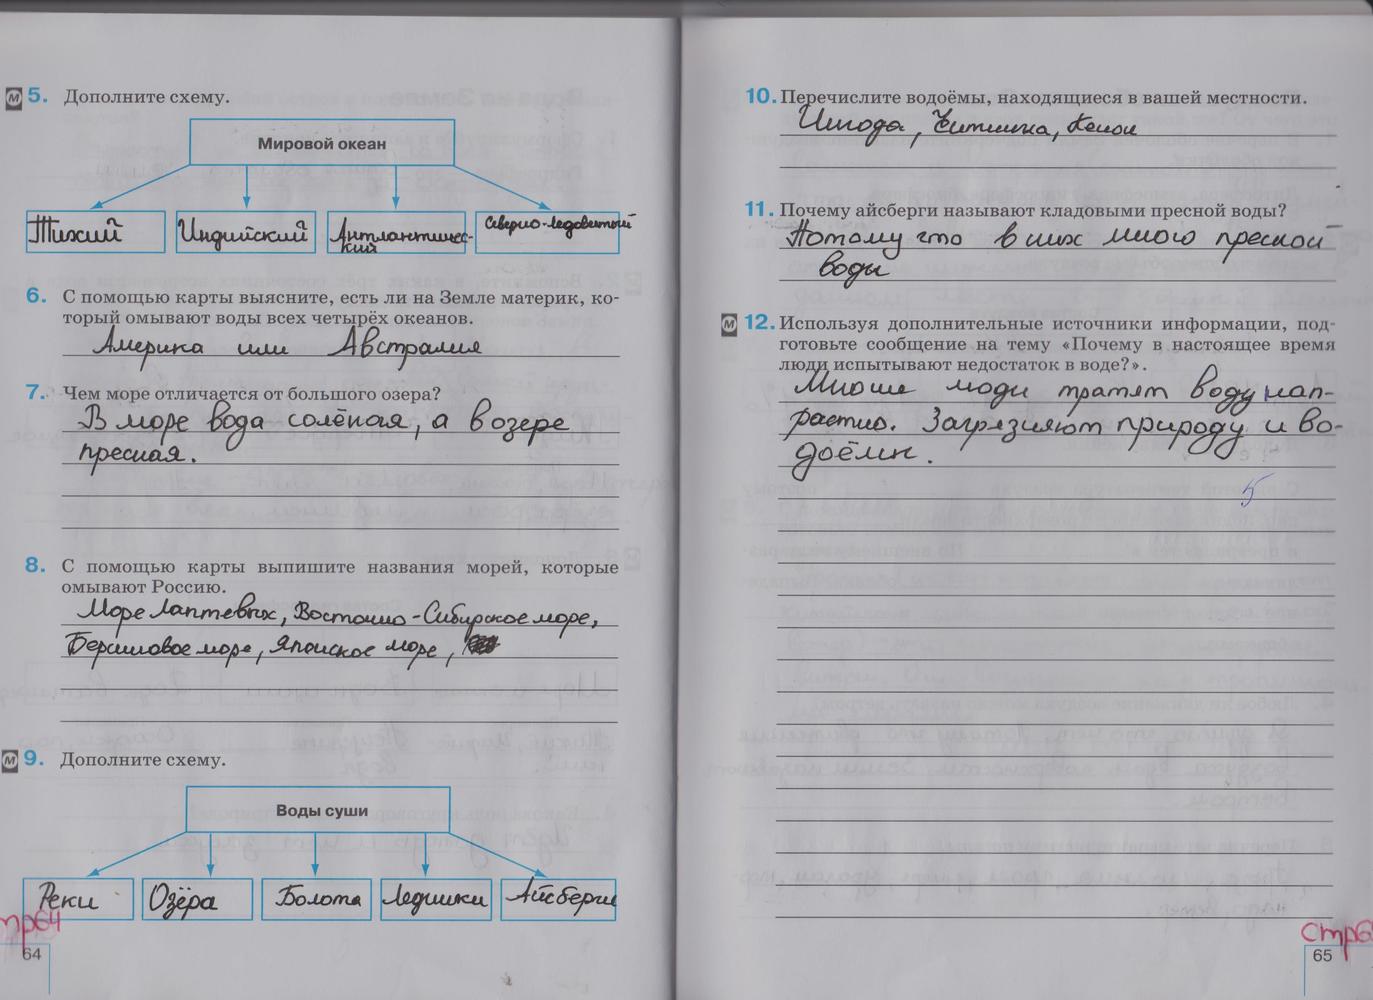 5. Дополните схему.
Мировой океан
Тихий
Индийский
Антлантичес-
кий
Северно-ледовитый
6. С помощью карты выясните, есть ли на Земле материк, ко-
торый омывают воды всех четырёх океанов.
Америка или Австралия
7. Чем море отличается от большого озера?
В море вода солёная, а в озере
пресная.
8. С помощью карты выпишите названия морей, которые
омывают Россию.
Море Лаптевых, Восточно-Сибирское море,
Беринговое море, Японское море,
9. Дополните схему.
Воды суши
Реки
Озёра
Болота
Ледники
Айсберги
стр64
64
10. Перечислите водоёмы, находящиеся в вашей местности.
Ингода, Читинка, Кенон
11. Почему айсберги называют кладовыми пресной воды?
Потому что в них много пресной
воды
12. Используя дополнительные источники информации, под-
готовьте сообщение на тему «Почему в настоящее время
люди испытывают недостаток в воде?».
Многие люди тратят воду нап-
растно. Загрязняют природу и во-
доёмы.
5
стр65
65